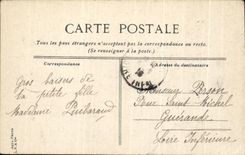 CARTE POSTALE
Tous les pays étrangers n'acceptent pas la correspondance au recto.
(Se renseigner à la poste)
Correspondance
L'Adresse du destinataire
Gros baisers de
la petite fille
Madeleine
Monsieur
Rue Saint Michel
Guérande
Loire Inférieure